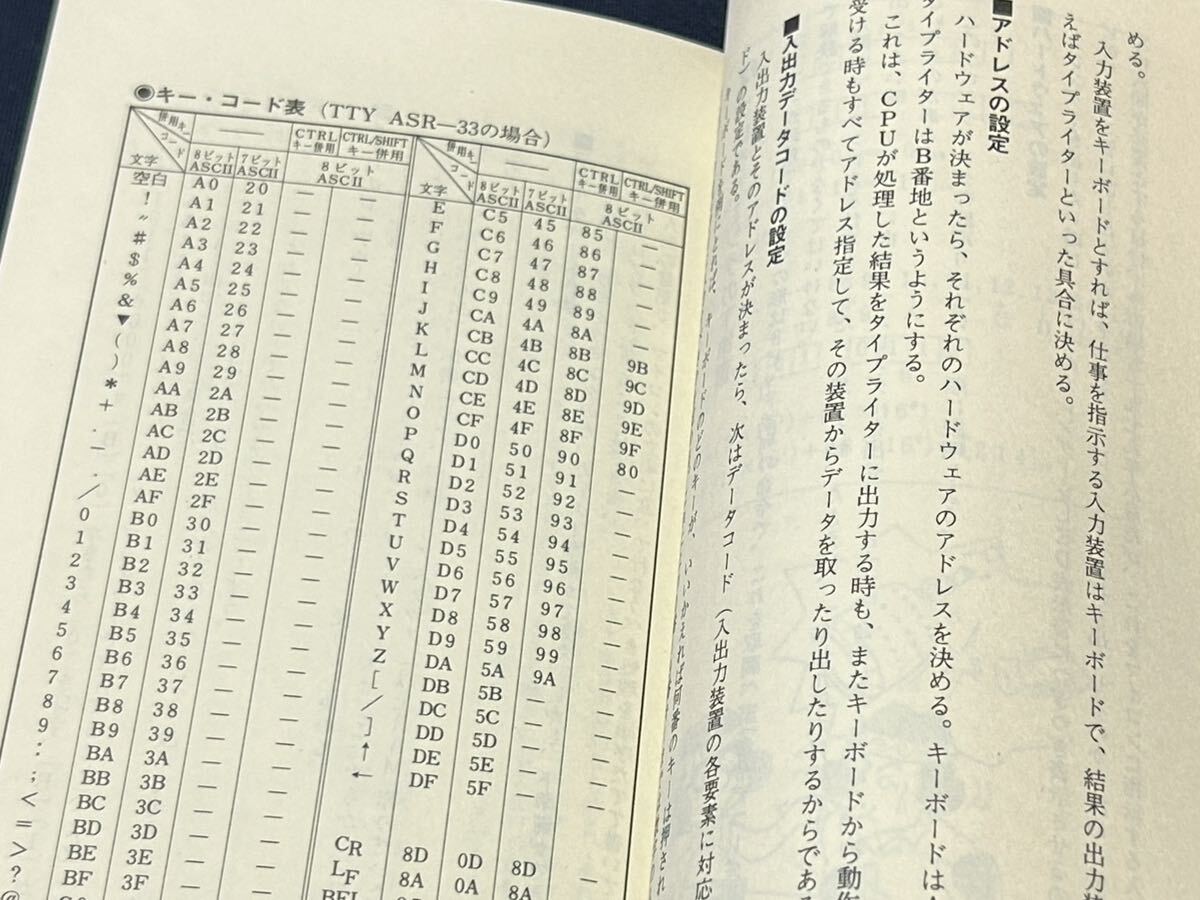 める。
入力装置をキーボードとすれば、仕事を指示する入力装置はキーボードで、結果の出力装
えばタイプライターといった具合に決める。
■アドレスの設定
ハードウェアが決まったら、それぞれのハードウェアのアドレスを決める。キーボードはA
タイプライターはB番地というようにする。
これは、CPUが処理した結果をタイプライターに出力する時も、またキーボードから動作
受ける時もすべてアドレス指定して、その装置からデータを取ったり出したりするからであ
■入出力データコードの設定
入出力装置とそのアドレスが決まったら、次はデータコード（入出力装置の各要素に対応
の設定である。
キーボードを例にとれば、キーボードのどのキーが、いいかえれば何番のキーは押され
◉キー・コード表（TTY ASR—33の場合）
併用キー コード 文字 —— CTRLキー併用 CTRL/SHIFTキー併用 併用キー コード 文字 —— CTRLキー併用 CTRL/SHIFTキー併用
8ビットASCII 7ビットASCII 8ビットASCII 8ビットASCII 7ビットASCII 8ビットASCII
空白 A0 20 — — E C5 45 85 —
! A1 21 — — F C6 46 86 —
〃 A2 22 — — G C7 47 87 —
# A3 23 — — H C8 48 88 —
$ A4 24 — — I C9 49 89 —
% A5 25 — — J CA 4A 8A —
& A6 26 — — K CB 4B 8B 9B
▼ A7 27 — — L CC 4C 8C 9C
( A8 28 — — M CD 4D 8D 9D
) A9 29 — — N CE 4E 8E 9E
* AA 2A — — O CF 4F 8F 9F
+ AB 2B — — P D0 50 90 80
. AC 2C — — Q D1 51 91 —
− AD 2D — — R D2 52 92 —
. AE 2E — — S D3 53 93 —
/ AF 2F — — T D4 54 94 —
0 B0 30 — — U D5 55 95 —
1 B1 31 — — V D6 56 96 —
2 B2 32 — — W D7 57 97 —
3 B3 33 — — X D8 58 98 —
4 B4 34 — — Y D9 59 99 —
5 B5 35 — — Z DA 5A 9A —
6 B6 36 — — [ DB 5B — —
7 B7 37 — — / DC 5C — —
8 B8 38 — — ] DD 5D — —
9 B9 39 — — ↑ DE 5E — —
: BA 3A — — ← DF 5F — —
; BB 3B — —
< BC 3C — —
= BD 3D — — CR 8D 0D 8D
> BE 3E — — LF 8A 0A 8A
? BF 3F — — BEL
@